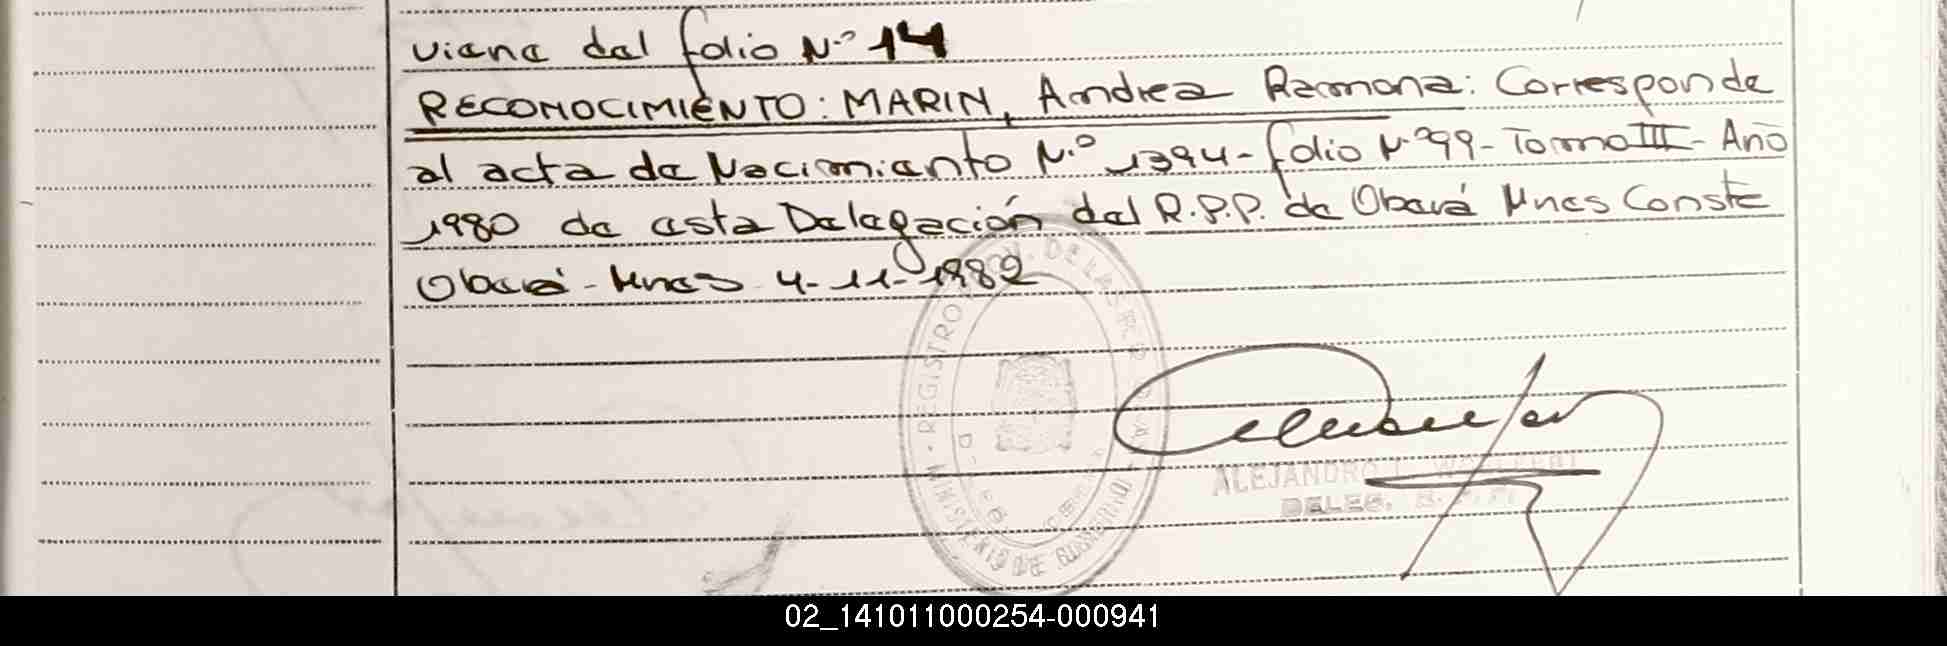 viene del folio N.º 14
RECONOCIMIENTO: MARIN, Andrea Ramona: Corresponde
al acta de Nacimiento N.º 1394 - folio Nº 99 - Tomo III - Año
1980 de esta Delegación del R.P.P. de Oberá Mnes Conste
Oberá - Mnes 4-11-1982
REGISTRO
ALEJANDRO L.
DELEG. R. P. P.
02_141011000254-000941